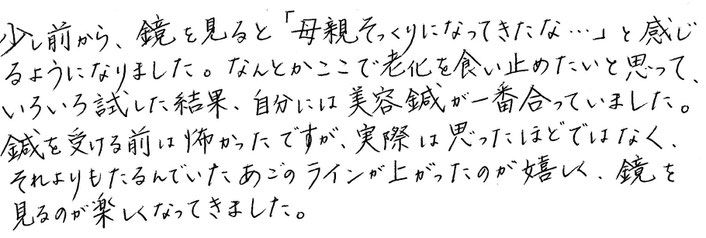 少し前から、鏡を見ると「母親そっくりになってきたな…」と感じ
るようになりました。なんとかここで老化を食い止めたいと思って、
いろいろ試した結果、自分には美容鍼が一番合っていました。
鍼を受ける前は怖かったですが、実際は思ったほどではなく、
それよりもたるんでいたあごのラインが上がったのが嬉しく、鏡を
見るのが楽しくなってきました。